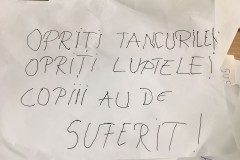 OPRIȚI TANCURILE!
OPRIȚI LUPTELE!
COPIII AU DE
SUFERIT!